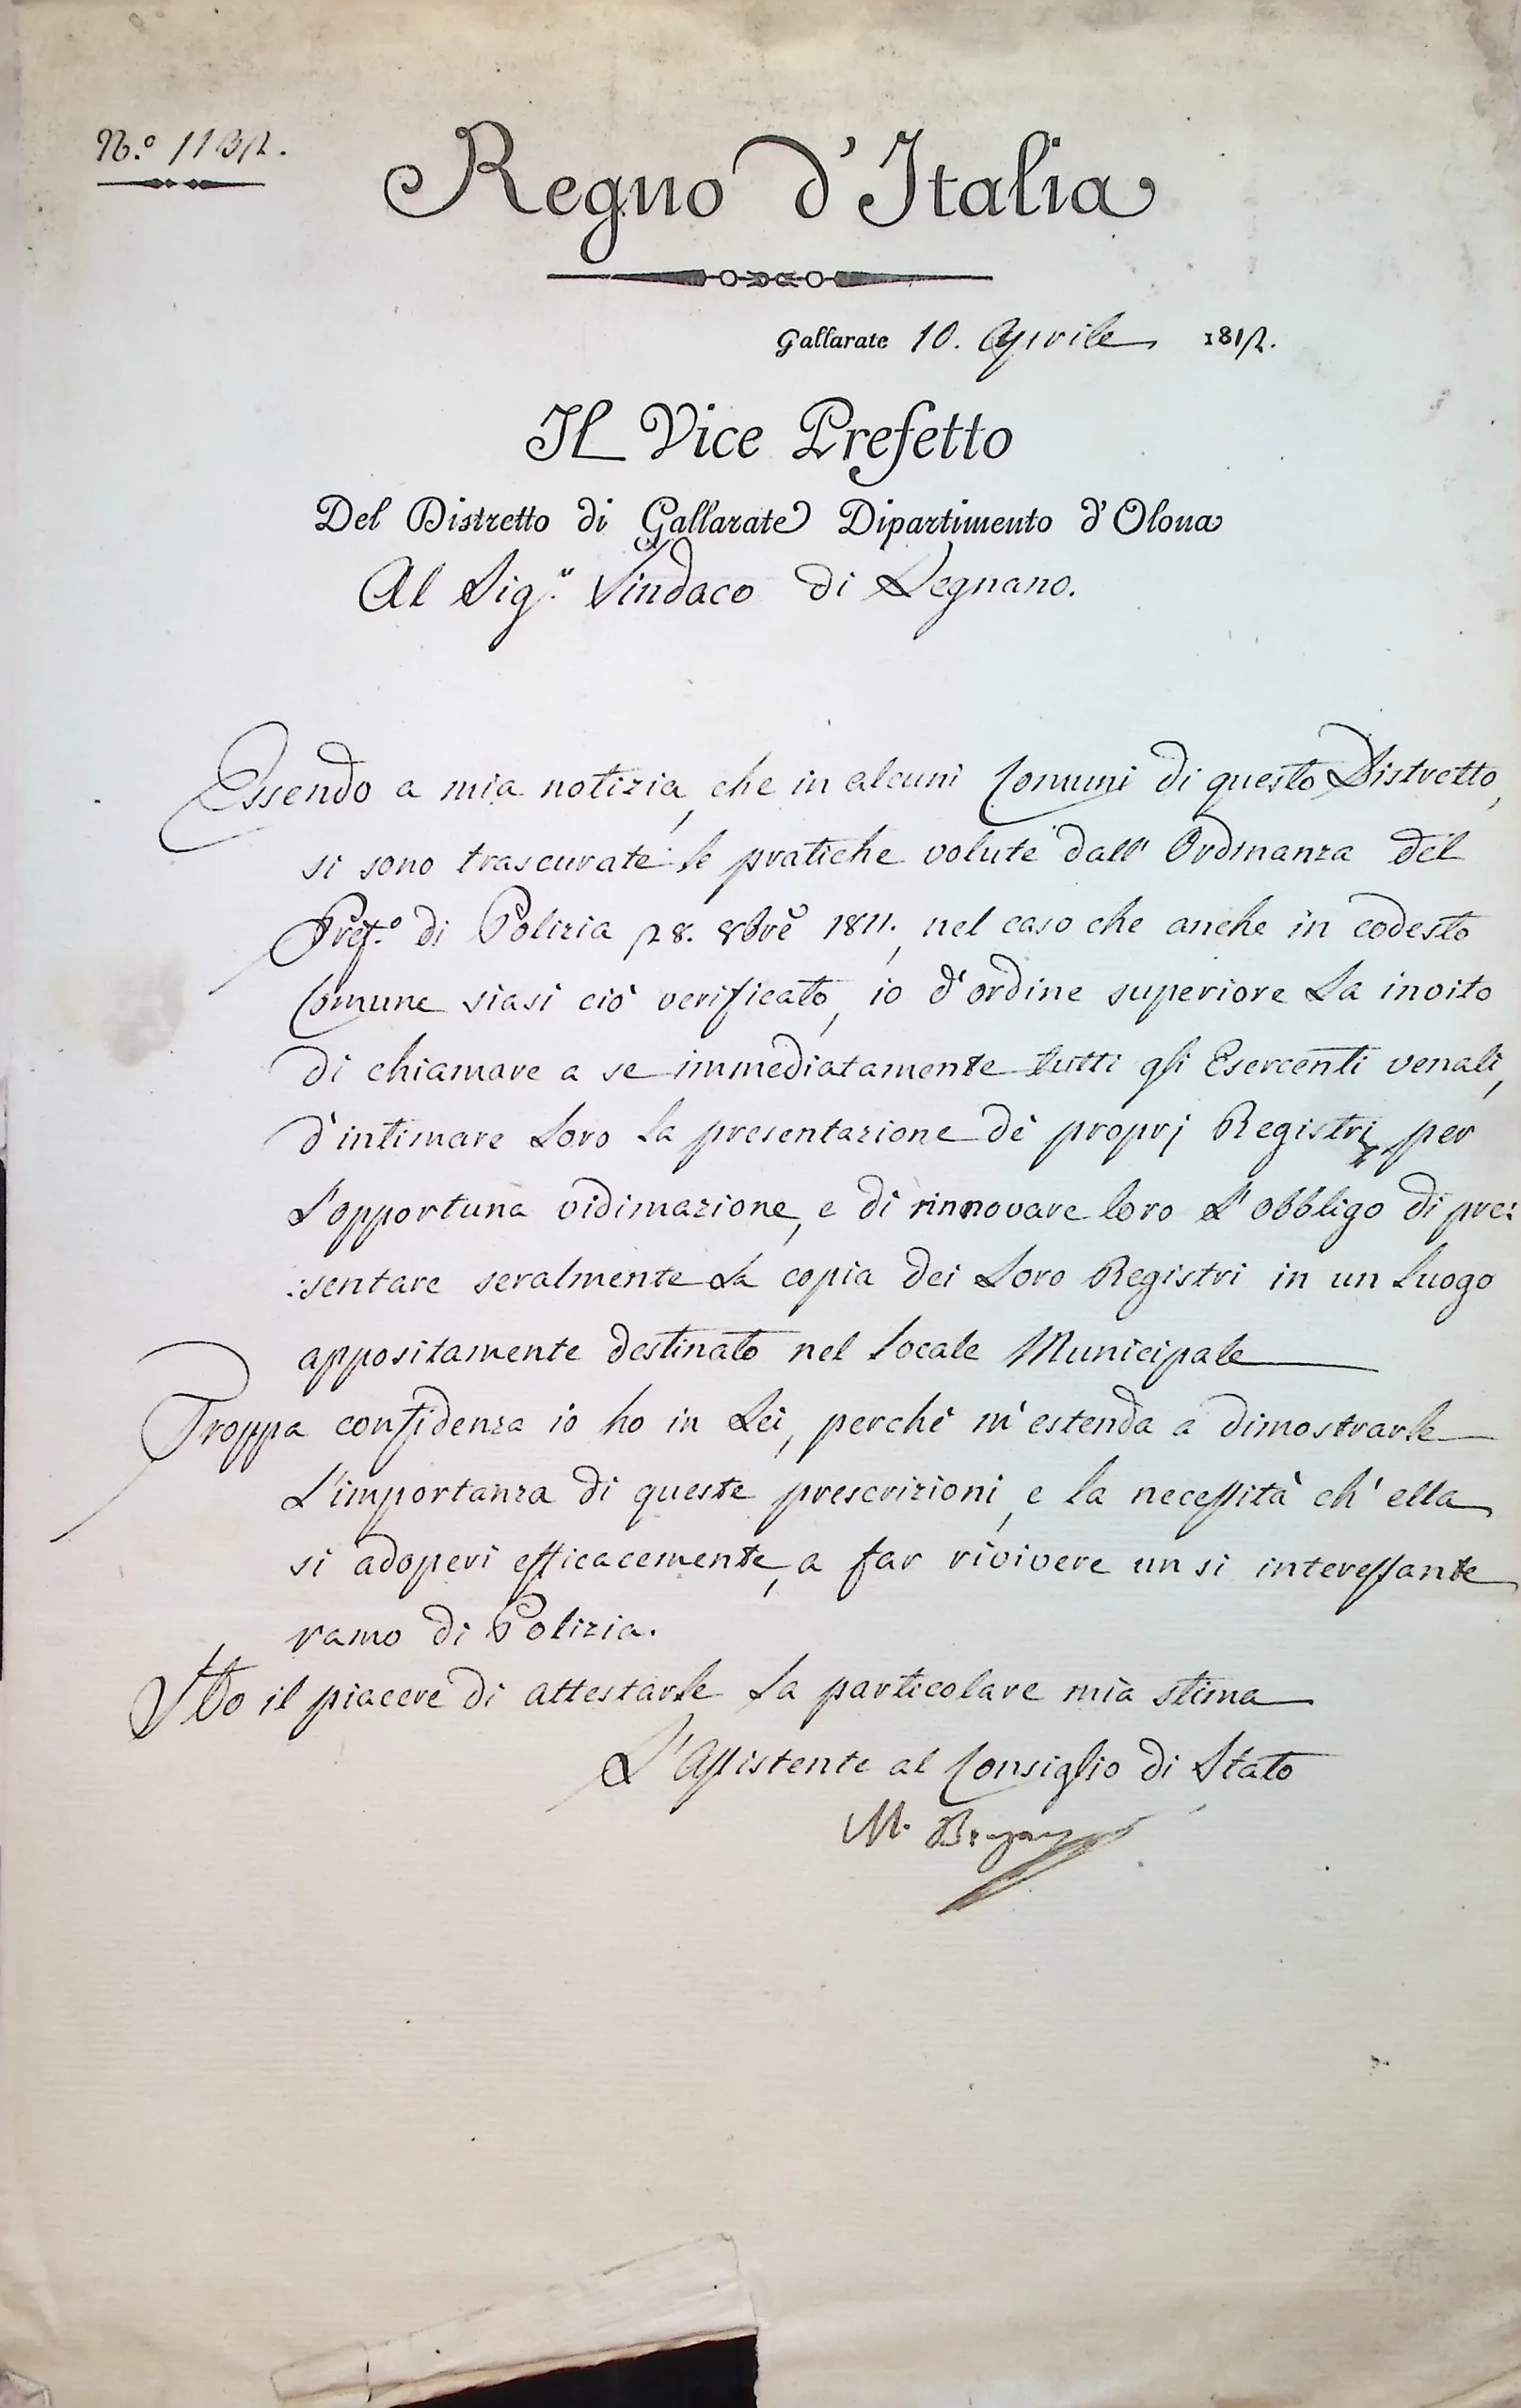 N.° 1132.
Regno d'Italia
Gallarate 10. Aprile 1812.
Il Vice Prefetto
Del Distretto di Gallarate Dipartimento d'Olona
Al Sig.r Sindaco di Legnano.
Essendo a mia notizia, che in alcuni Comuni di questo Distretto,
si sono trascurate le pratiche volute dall' Ordinanza del
Pref.° di Polizia 28. 8bre 1811., nel caso che anche in codesto
Comune siasi ciò verificato, io d'ordine superiore La invito
di chiamare a se immediatamente tutti gli Esercenti venali,
d'intimare Loro la presentazione de' proprj Registri, per
L'opportuna vidimazione, e di rinnovare loro L'obbligo di pre:
:sentare seralmente La copia dei Loro Registri in un Luogo
appositamente destinato nel Locale Municipale
Troppa confidenza io ho in Lei, perchè m'estenda a dimostrarle
L'importanza di queste prescrizioni, e la necessità ch'ella
si adoperi efficacemente, a far rivivere un si interessante
ramo di Polizia.
Ho il piacere di attestarle La particolare mia stima
L'Assistente al Consiglio di Stato
M.